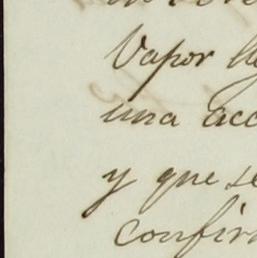 Vapor
una acc
y que se
confir